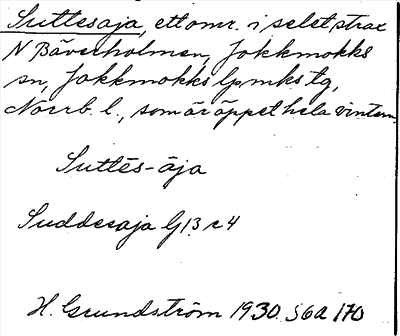 Suttesaja, ett omr. i selet strax
N Bäverholmen, Jokkmokks
sn, Jokkmokks lpmks tg,
Norrb. l., som är öppet hela vintern.
Suttēs-āja
Suddesaja G13 r4
H. Grundström 1930 S6a 170